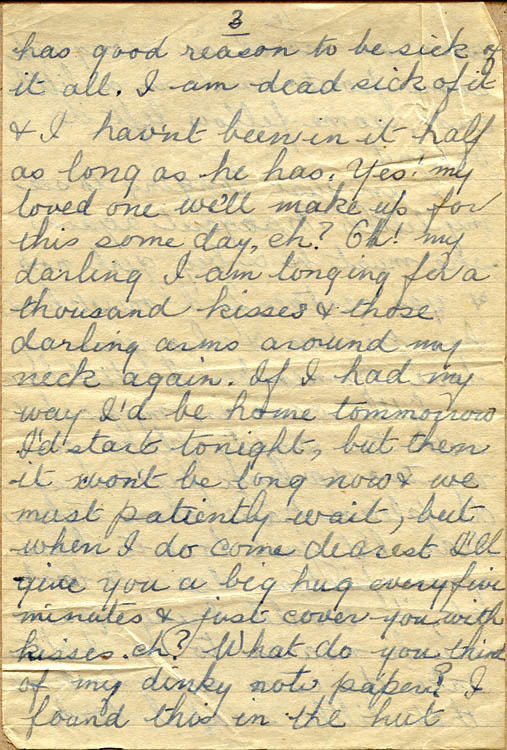 3
has good reason to be sick of
it all. I am dead sick of it
& I hav'nt been in it half
as long as he has. Yes! my
loved one we'll make up for
this some day, eh? Oh! my
darling I am longing for a
thousand kisses & those
darling arms around my
neck again. If I had my
way I'd be home tommorrow
I'd start tonight, but then
it won't be long now & we
must patiently wait, but
when I do come dearest I'll
give you a big hug every five
minutes & just cover you with
kisses. eh? What do you think
of my dinky note paper? I
found this in the hut